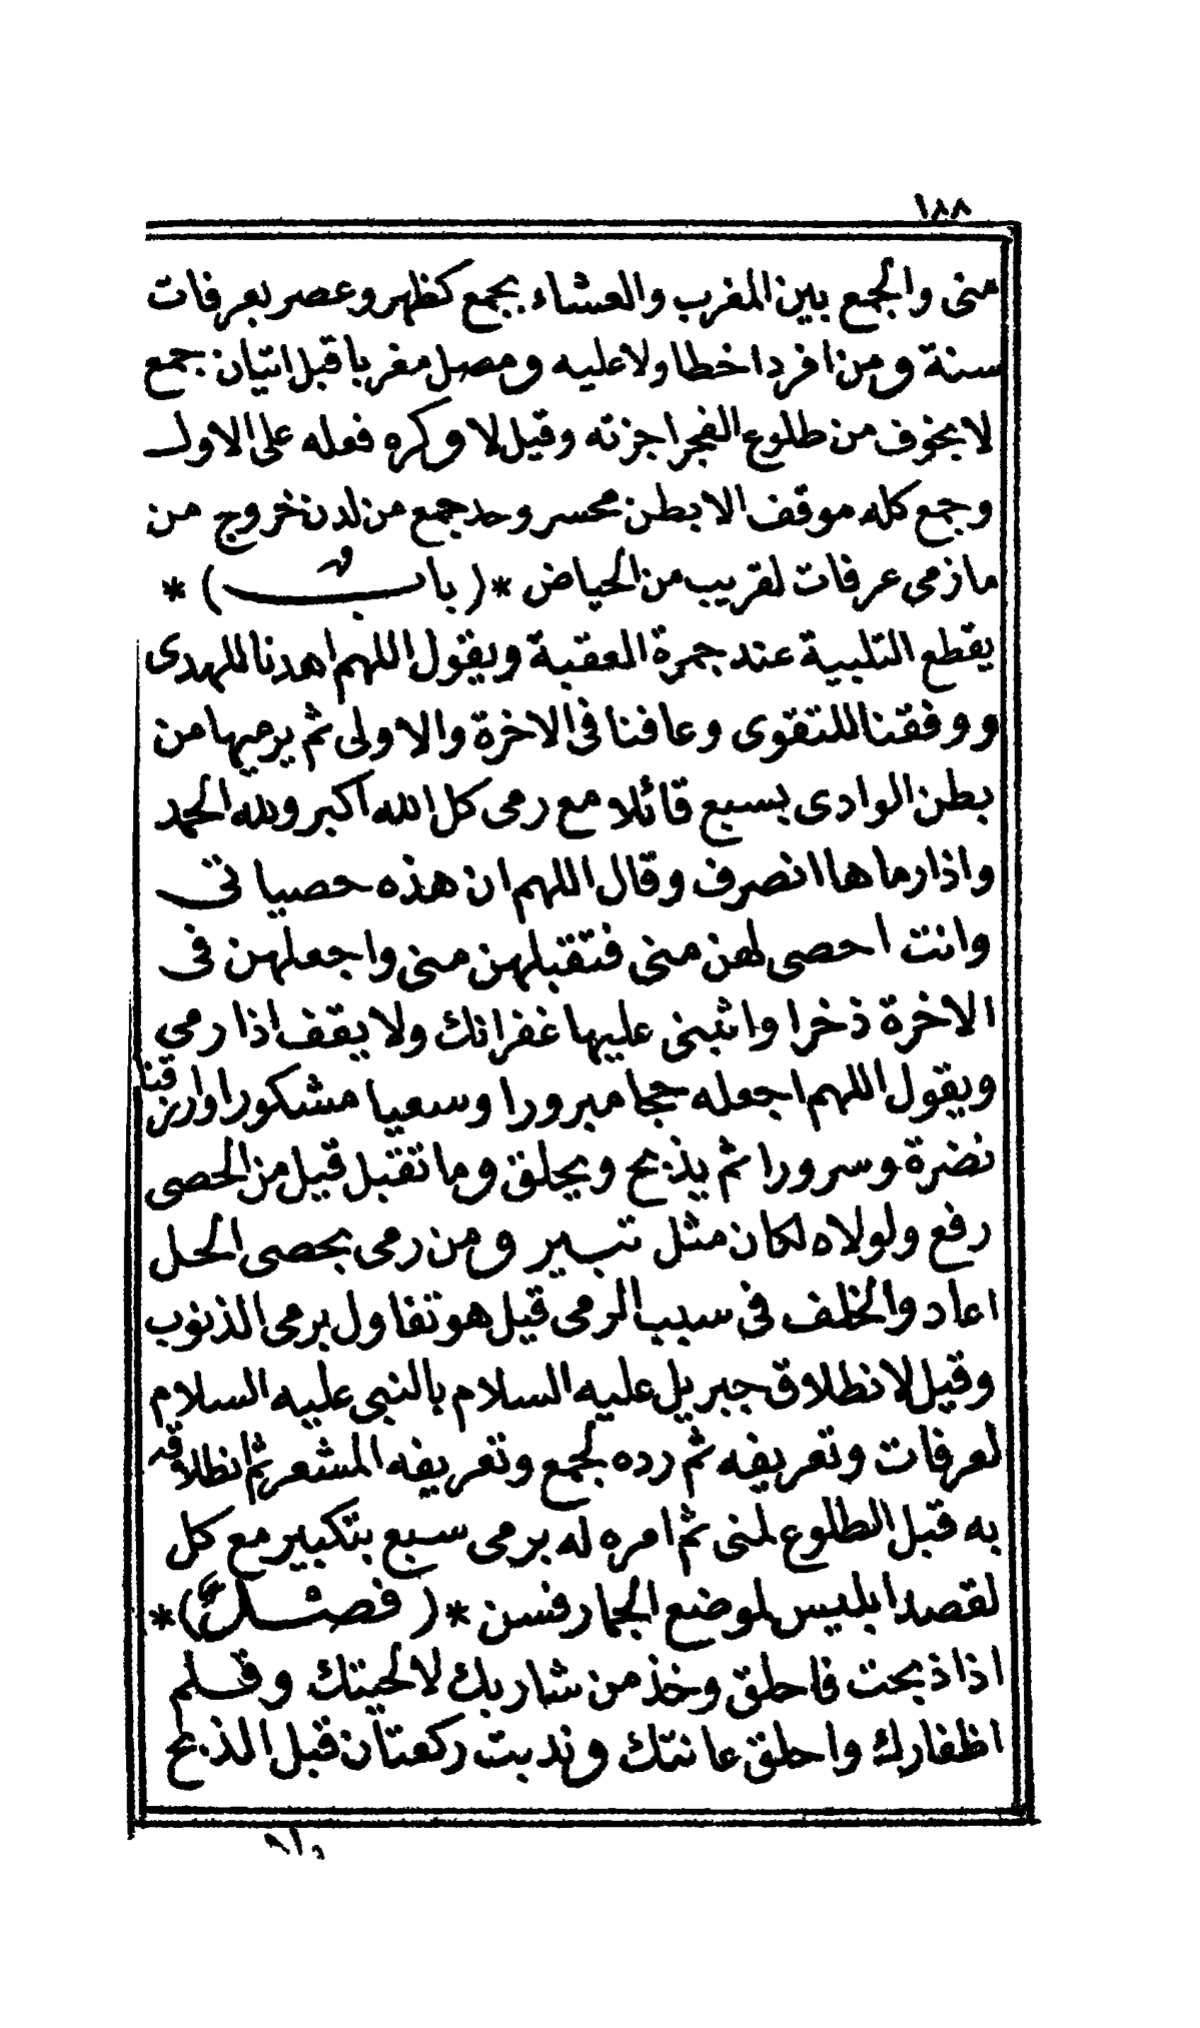 ١٨٨
منى والجمع بين المغرب والعشاء بجمع كظهر وعصر بعرفات
سنة ومن افرد اخطا ولا عليه ومصل مغربا قبل اتيان جمع
لا بخوف من طلوع الفجر اجزته وقيل لا وكره فعله على الاول
وجمع كله موقف الا بطن محسر وحد جمع من لدن خروج من
مازمى عرفات لقريب من الحياض * ( باب ) *
يقطع التلبية عند جمرة العقبة ويقول اللهم اهدنا للهدى
ووفقنا للتقوى وعافنا فى الاخرة والاولى ثم يرميها من
بطن الوادى بسبع قائلا مع رمى كل الله اكبر ولله الحمد
واذا رماها انصرف وقال اللهم ان هذه حصياتى
وانت احصى لهن منى فتقبلهن منى واجعلهن فى
الاخرة ذخرا واثبنى عليها غفرانك ولا يقف اذا رمى
ويقول اللهم اجعله حجا مبرورا وسعيا مشكورا وارزقنا
نضرة وسرورا ثم يذبح ويحلق وما تقبل قيل من الحصى
رفع ولولاه لكان مثل ثبير ومن رمى بحصى الحل
اعاد والخلف فى سبب الرمى قيل هو تفاول برمى الذنوب
وقيل لانطلاق جبريل عليه السلام بالنبى عليه السلام
لعرفات وتعريفه ثم رده لجمع وتعريفه المشعر ثم انطلاقه
به قبل الطلوع لمنى ثم امره له برمى سبع بتكبير مع كل
لقصد ابليس لموضع الجمار فسن * ( فصل ) *
اذا ذبحت فاحلق وخذ من شاربك لا لحيتك وقلم
اظفارك واحلق عانتك وندبت ركعتان قبل الذبح